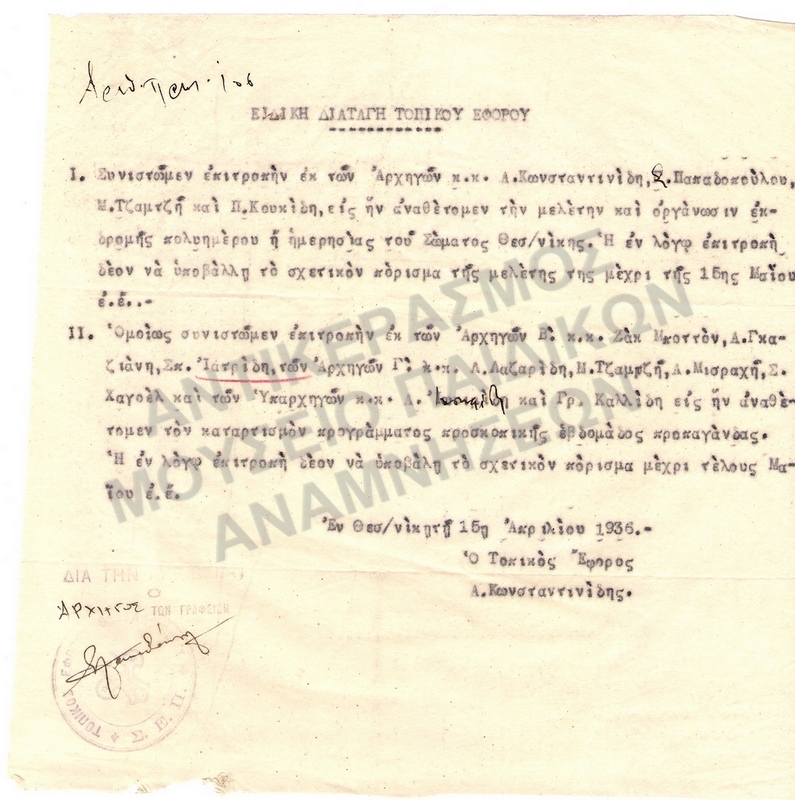 Αριθ. Πρωτ. 108
ΕΙΔΙΚΗ ΔΙΑΤΑΓΗ ΤΟΠΙΚΟΥ ΕΦΟΡΟΥ
Ι. Συνιστῶμεν ἐπιτροπὴν ἐκ τῶν Ἀρχηγῶν κ.κ. Α.Κωνσταντινίδη, Σ.Παπαδοπούλου,
Μ.Τζαμτζῆ καὶ Π.Κουκίδη, εἰς ἣν ἀναθέτομεν τὴν μελέτην καὶ ὀργάνωσιν ἐκ-
δρομῆς πολυημέρου ἢ ἡμερησίας τοῦ Σώματος Θεσ/νίκης. Ἡ ἐν λόγῳ ἐπιτροπὴ
δέον νὰ ὑποβάλλῃ τὸ σχετικὸν πόρισμα τῆς μελέτης της μέχρι τῆς 15ης Μαΐου
ἐ.ἔ..-
ΙΙ. Ὁμοίως συνιστῶμεν ἐπιτροπὴν ἐκ τῶν Ἀρχηγῶν Β! κ.κ. Ζὰκ Μποττὸν, Α.Γκα-
ζιάνη, Σπ. Ἰατρίδη, τῶν Ἀρχηγῶν Γ! κ.κ. Λ.Λαζαρίδη, Μ.Τζαμπζῆ, Α.Μισραχῆ, Σ.
Χαγοὲλ καὶ τῶν Ὑπαρχηγῶν κ.κ. Α. καὶ Γρ. Καλλίδη εἰς ἣν ἀναθέ-
τομεν τὸν καταρτισμὸν προγράμματος προσκοπικῆς ἑβδομάδος προπαγάνδας.
Ἡ ἐν λόγῳ ἐπιτροπὴ δέον νὰ ὑποβάλῃ τὸ σχετικὸν πόρισμα μέχρι τέλους Μα-
ΐου ἐ.ἔ.
Ἐν Θεσ/νίκῃτῇ 15ῃ Ἀπριλίου 1936.-
Ὁ Τοπικὸς Ἔφορος
Α.Κωνσταντινίδης.
ΔΙΑ ΤΗΝ
Ο
ΑΡΧΗΓΟΣ ΤΩΝ ΓΡΑΦΕΙΩΝ
ΤΟΠΙΚΟΣ ΕΦΟ
Σ.Ε.Π.
ΑΝΤΙΚΕΡΑΣΜΟΣ
ΜΟΥΣΕΙΟ ΠΑΙΔΙΚΩΝ
ΑΝΑΜΝΗΣΕΩΝ